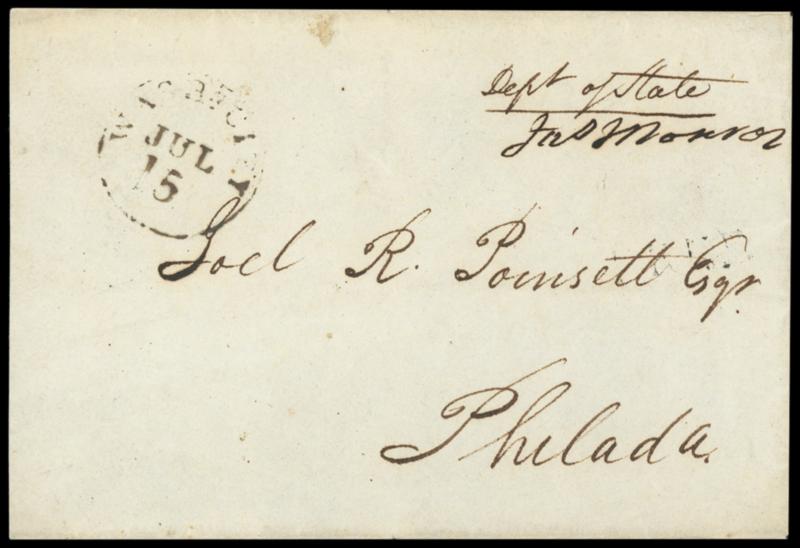 WASH. CITY
JUL
15
Dept of State
Jas Monroe
Joel R. Poinsett Esqr.
Philada.